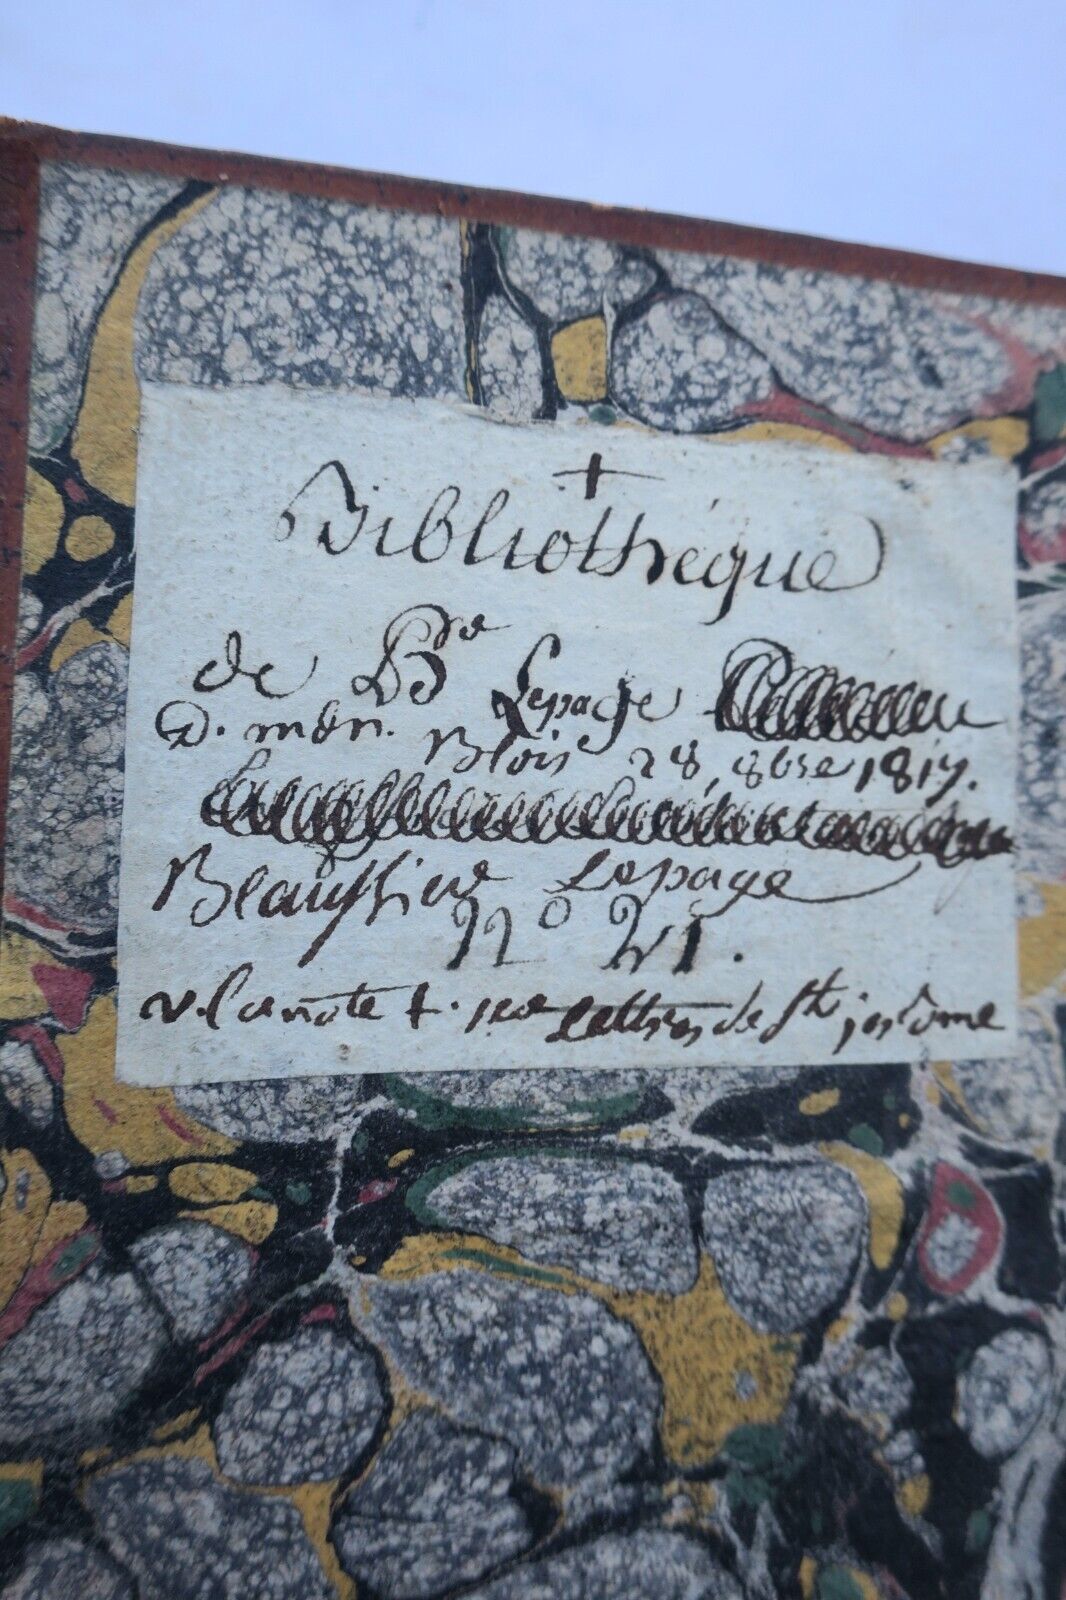 +
Bibliothéque
de Bre Lepage
D. mdn. Blois 28 8bre 1817.
Beaussier Lepage
No 21.
v. la note + . 1re Lettres de St jerôme